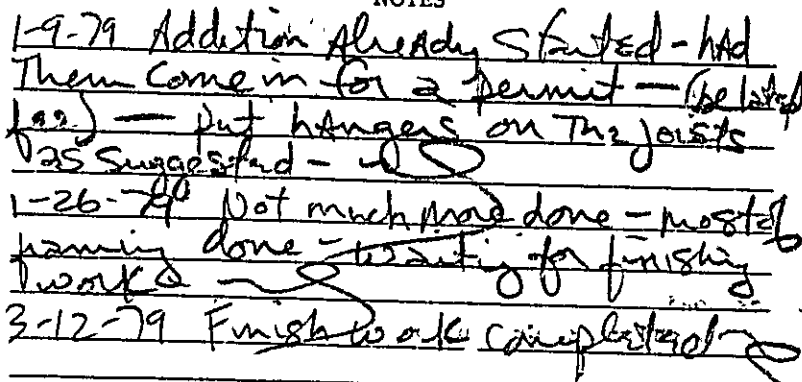 NOTES
1-9-79 Addition Already Started - hAd
Them come in for a permit - (belated
fee) - put hAngers on The Joists
as suggested -
1-26-79 Not much more done - most of
framing done - waiting for finishing
work
3-12-79 Finish work completed